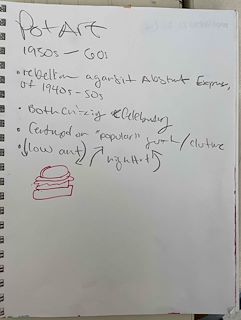 Pop Art
1950s - 60s
• rebellion against Abstract Express,
of 1940s-50s
• Both Criticizing & Celebrating
• Centered on "popular" / culture
• low art
high Art